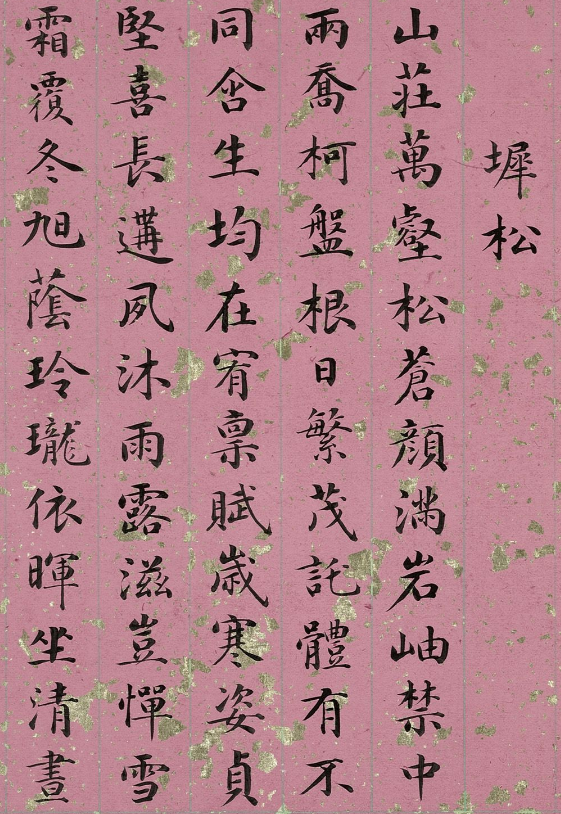 墀松
山莊萬壑松蒼顏滿岩岫禁中
兩喬柯盤根日繁茂託體有不
同含生均在宥稟賦歲寒姿貞
堅喜長遘夙沐雨露滋豈憚雪
霜覆冬旭蔭玲瓏依暉坐清晝